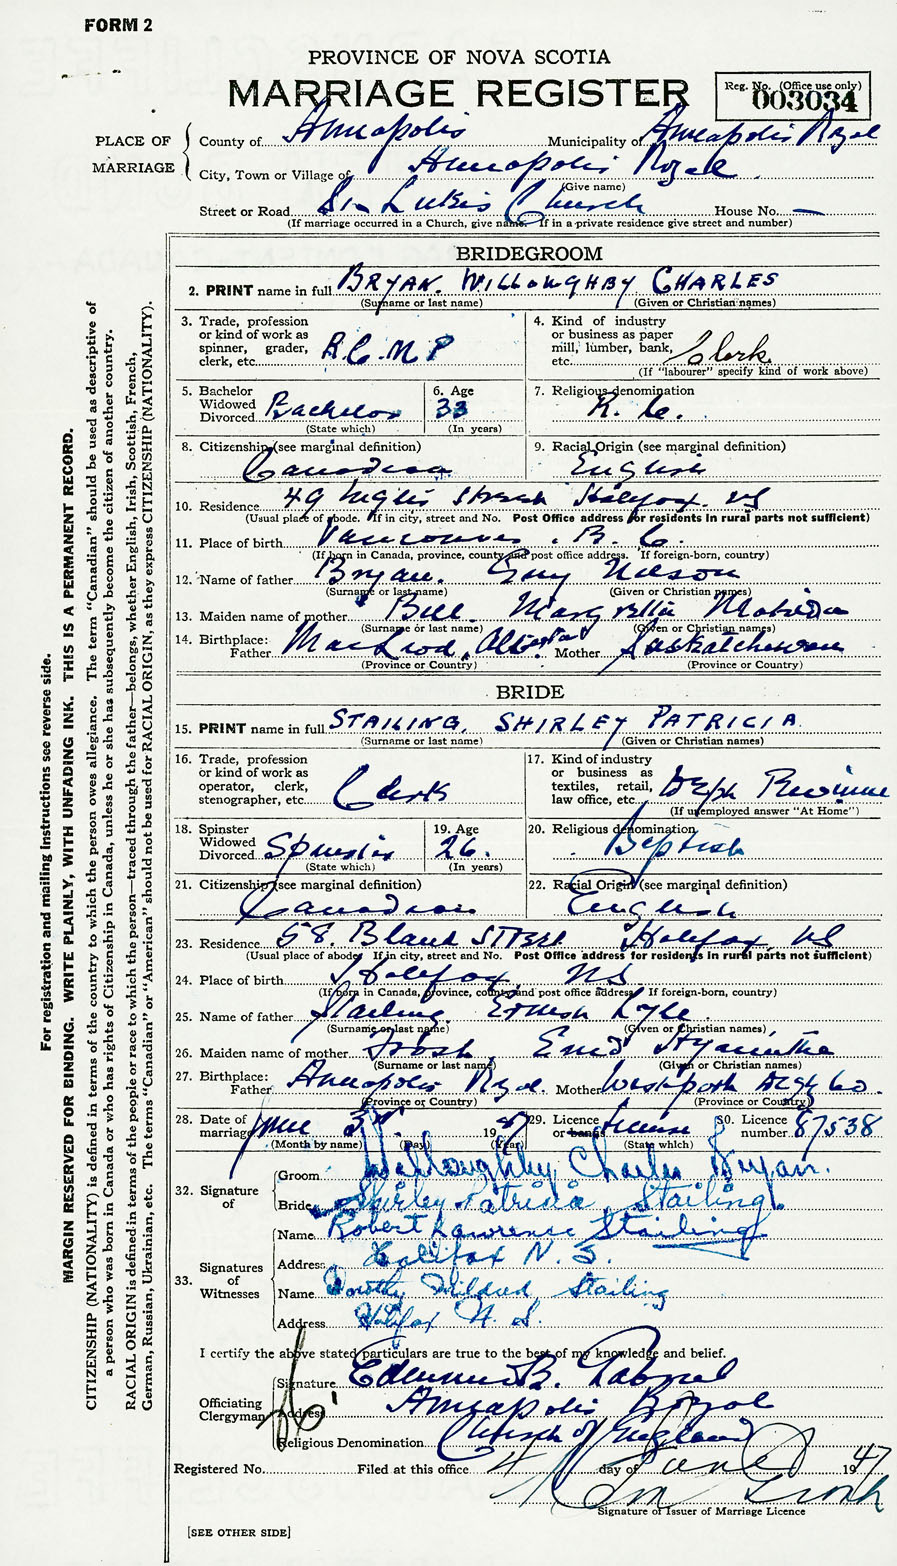 FORM 2
PROVINCE OF NOVA SCOTIA
MARRIAGE REGISTER
Reg. No. (Office use only)
003034
PLACE OF MARRIAGE
County of Annapolis Municipality of Annapolis Royal
City, Town or Village of Annapolis Royal
(Give name)
Street or Road St. Lukes Church House No. —
(If marriage occurred in a Church, give name. If in a private residence give street and number)
BRIDEGROOM
2. PRINT name in full BRYAN. WILLOUGHBY CHARLES
(Surname or last name) (Given or Christian names)
3. Trade, profession or kind of work as spinner, grader, clerk, etc. R.C.M.P
4. Kind of industry or business as paper mill, lumber, bank, etc. Clerk
(If "labourer" specify kind of work above)
5. Bachelor Widowed Divorced Bachelor
(State which)
6. Age 33
(In years)
7. Religious denomination R. C.
8. Citizenship (see marginal definition) Canadian
9. Racial Origin (see marginal definition) English
10. Residence 49 Inglis Street Halifax NS
(Usual place of abode. If in city, street and No. Post Office address for residents in rural parts not sufficient)
11. Place of birth Vancouver. B. C.
(If born in Canada, province, county and post office address. If foreign-born, country)
12. Name of father Bryan. Guy Nelson
(Surname or last name) (Given or Christian names)
13. Maiden name of mother Bell
(Surname or last name) (Given or Christian names)
14. Birthplace: Father MacLeod, Alberta Mother Saskatchewan
(Province or Country) (Province or Country)
BRIDE
15. PRINT name in full STAILING, SHIRLEY PATRICIA
(Surname or last name) (Given or Christian names)
16. Trade, profession or kind of work as operator, clerk, stenographer, etc. Clerk
17. Kind of industry or business as textiles, retail, law office, etc.
(If unemployed answer "At Home")
18. Spinster Widowed Divorced Spinster
(State which)
19. Age 26.
(In years)
20. Religious denomination Baptist
21. Citizenship (see marginal definition) Canadian
22. Racial Origin (see marginal definition) English
23. Residence 58. Bland STREET Halifax, NS
(Usual place of abode. If in city, street and No. Post Office address for residents in rural parts not sufficient)
24. Place of birth Halifax, NS
(If born in Canada, province, county and post office address. If foreign-born, country)
25. Name of father Stailing. Ernest Lyle
(Surname or last name) (Given or Christian names)
26. Maiden name of mother Enid Hyacinthe
(Surname or last name) (Given or Christian names)
27. Birthplace: Father Annapolis Royal. Mother Westport Digby Co.
(Province or Country) (Province or Country)
28. Date of marriage June 3rd 1947
(Month by name) (Day) (Year)
29. Licence or banns License
(State which)
30. Licence number 87538
32. Signature of
Groom Willoughby Charles Bryan.
Bride Shirley Patricia Stailing
33. Signatures of Witnesses
Name Robert Lawrence Stailing
Address Halifax N. S.
Name Dorothy Mildred Stailing
Address Halifax N. S.
I certify the above stated particulars are true to the best of my knowledge and belief.
Officiating Clergyman
Signature B.
Address Annapolis Royal
Religious Denomination Church of England
Registered No. Filed at this office 4 day of June 1947
Signature of Issuer of Marriage Licence
[SEE OTHER SIDE]
For registration and mailing instructions see reverse side.
MARGIN RESERVED FOR BINDING. WRITE PLAINLY, WITH UNFADING INK. THIS IS A PERMANENT RECORD.
CITIZENSHIP (NATIONALITY) is defined in terms of the country to which the person owes allegiance. The term "Canadian" should be used as descriptive of
a person who was born in Canada or who has rights of Citizenship in Canada, unless he or she has subsequently become the citizen of another country.
RACIAL ORIGIN is defined in terms of the people or race to which the person—traced through the father—belongs, whether English, Irish, Scottish, French,
German, Russian, Ukrainian, etc. The terms "Canadian" or "American" should not be used for RACIAL ORIGIN, as they express CITIZENSHIP (NATIONALITY).